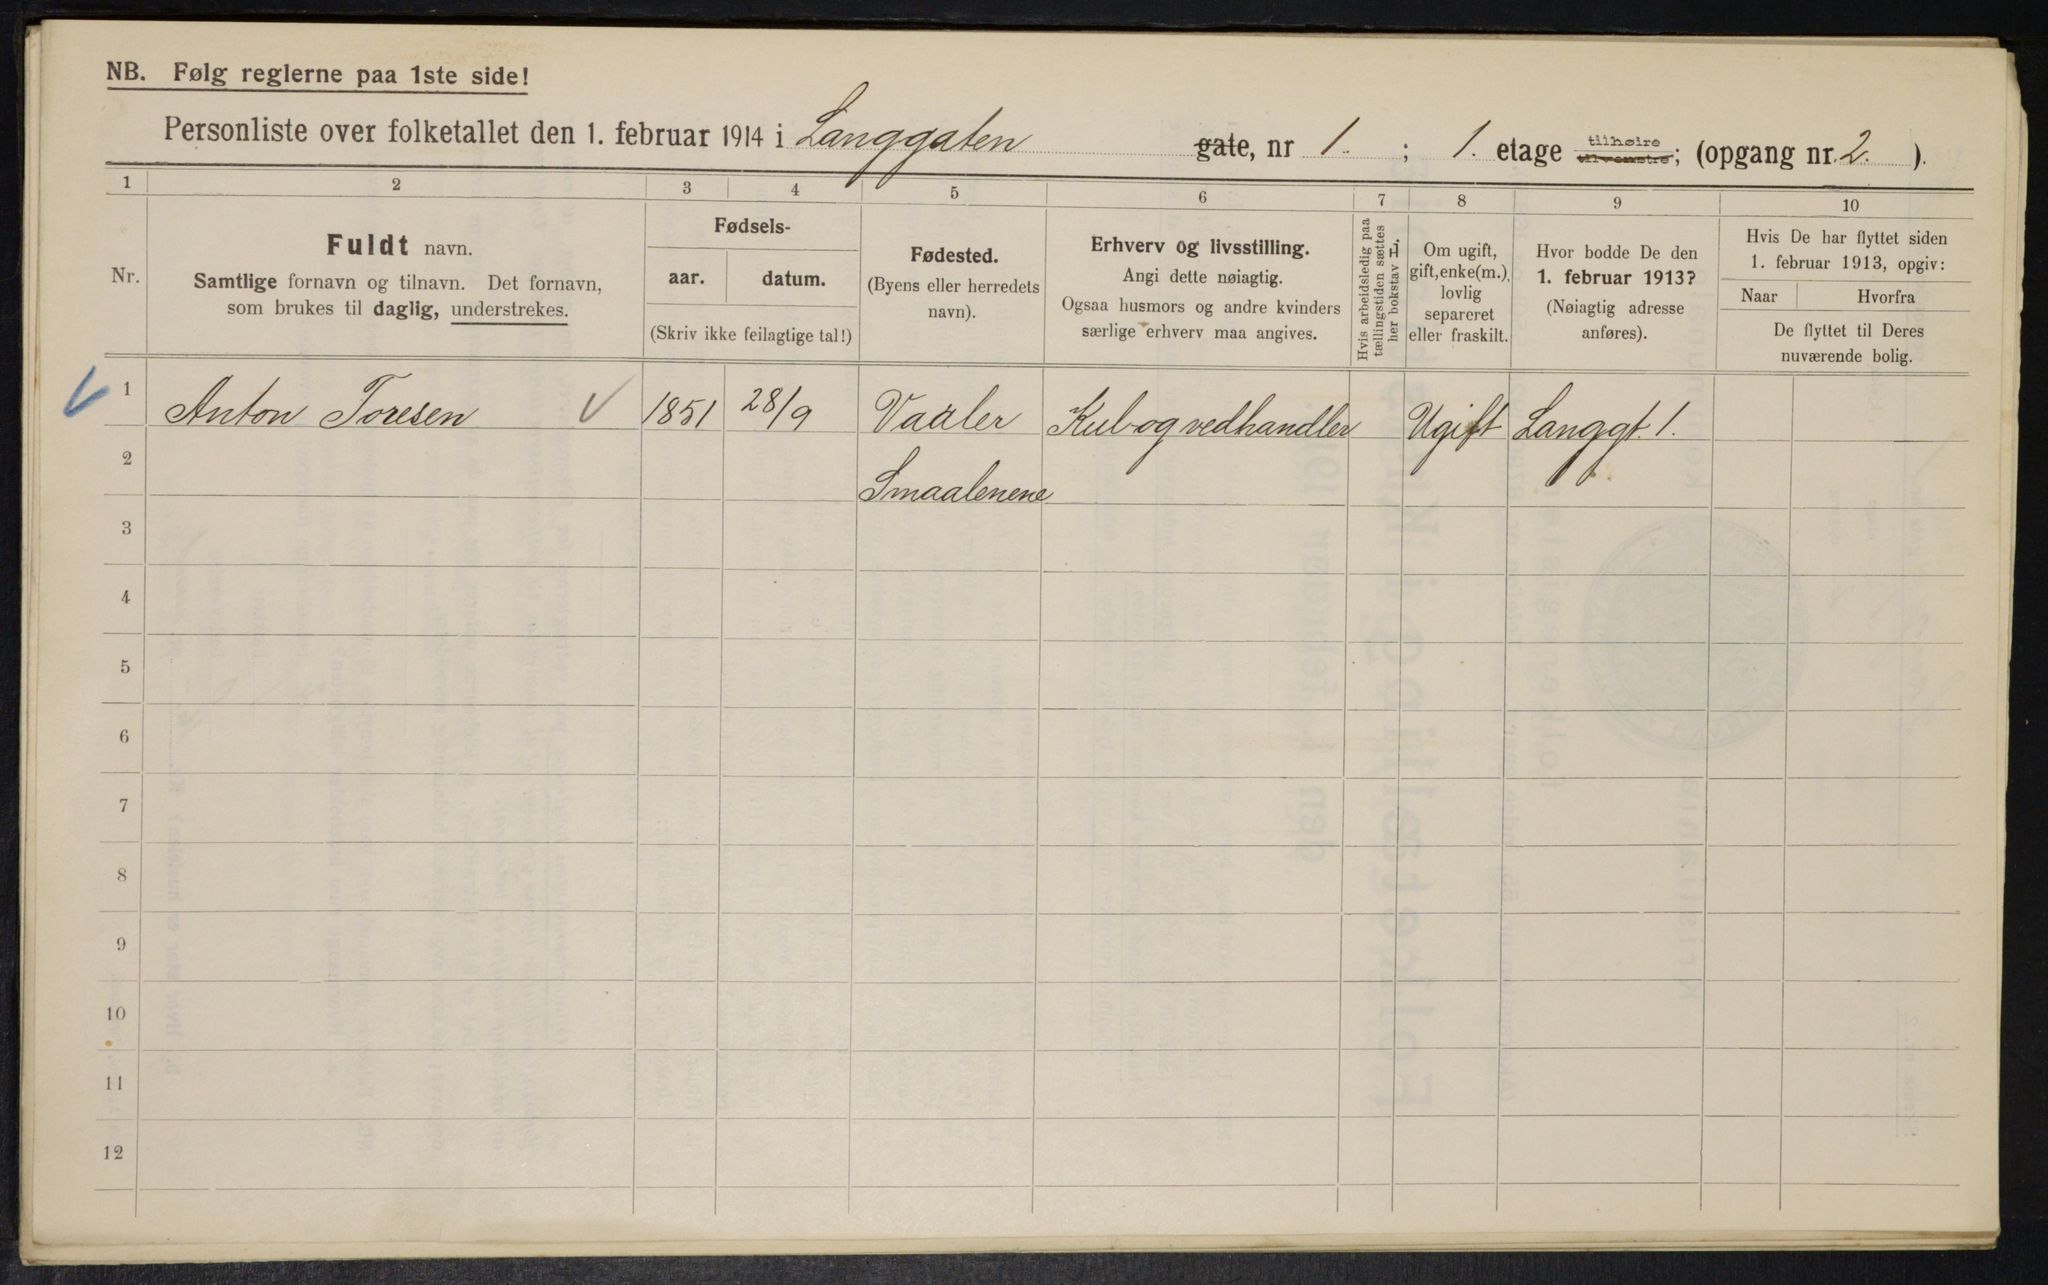 NB. Følg reglerne paa 1ste side!
Personliste over folketallet den 1. februar 1914 i Langgaten gate, nr 1. ; 1. etage tilhøire tilvenstre; (opgang nr. 2. ).
1 2 3 4 5 6 7 8 9 10
Nr.
Fuldt navn.
Samtlige fornavn og tilnavn. Det fornavn,
som brukes til daglig, understrekes.
Fødsels-
aar. datum.
(Skriv ikke feilagtige tal!)
Fødested.
(Byens eller herredets
navn).
Erhverv og livsstilling.
Angi dette nøiagtig.
Ogsaa husmors og andre kvinders
særlige erhverv maa angives.
Hvis arbeidsledig paa
tællingstiden sættes
her bokstav L.
Om ugift,
gift, enke(m.),
lovlig
separeret
eller fraskilt.
Hvor bodde De den
1. februar 1913?
(Nøiagtig adresse
anføres).
Hvis De har flyttet siden
1. februar 1913, opgiv:
Naar Hvorfra
De flyttet til Deres
nuværende bolig.
1 Anton Toresen 1851 28/9 Vaaler Kul-og vedhandler Ugift Langgt. 1.
2 Smaalenene
3
4
5
6
7
8
9
10
11
12